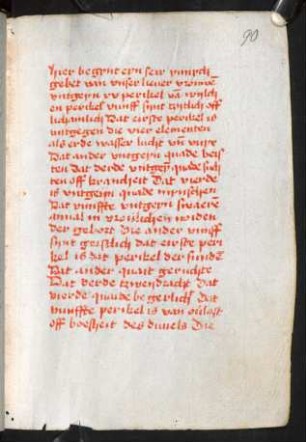 90
Hier begynt eyn seer ynnych
gebet van vnser liever vrouwe
vntgeyn xv perikel va wylch
en perikel vunff synt tzytlich off
lichamlich Dat eirste perikel is
vntgegen die vier elementen
als erde wasser lucht vn vuyr
Dat ander vntgeyn quade beis
ten dat derde vntgey quade such
ten off kranckeit Dat vierde
is vntgeyn quade mynschen
Dat vunffte vntgeyn swaere
in noiden
der gebort Die ander vunff
synt geistlich dat eirste peri
kel is dat perikel der sunden
Dat ander quait geruchte
Dat derde tzwendracht Dat
vierde quade begerlich Dat
vunffte perikel is van
off boesheit des duuels Die